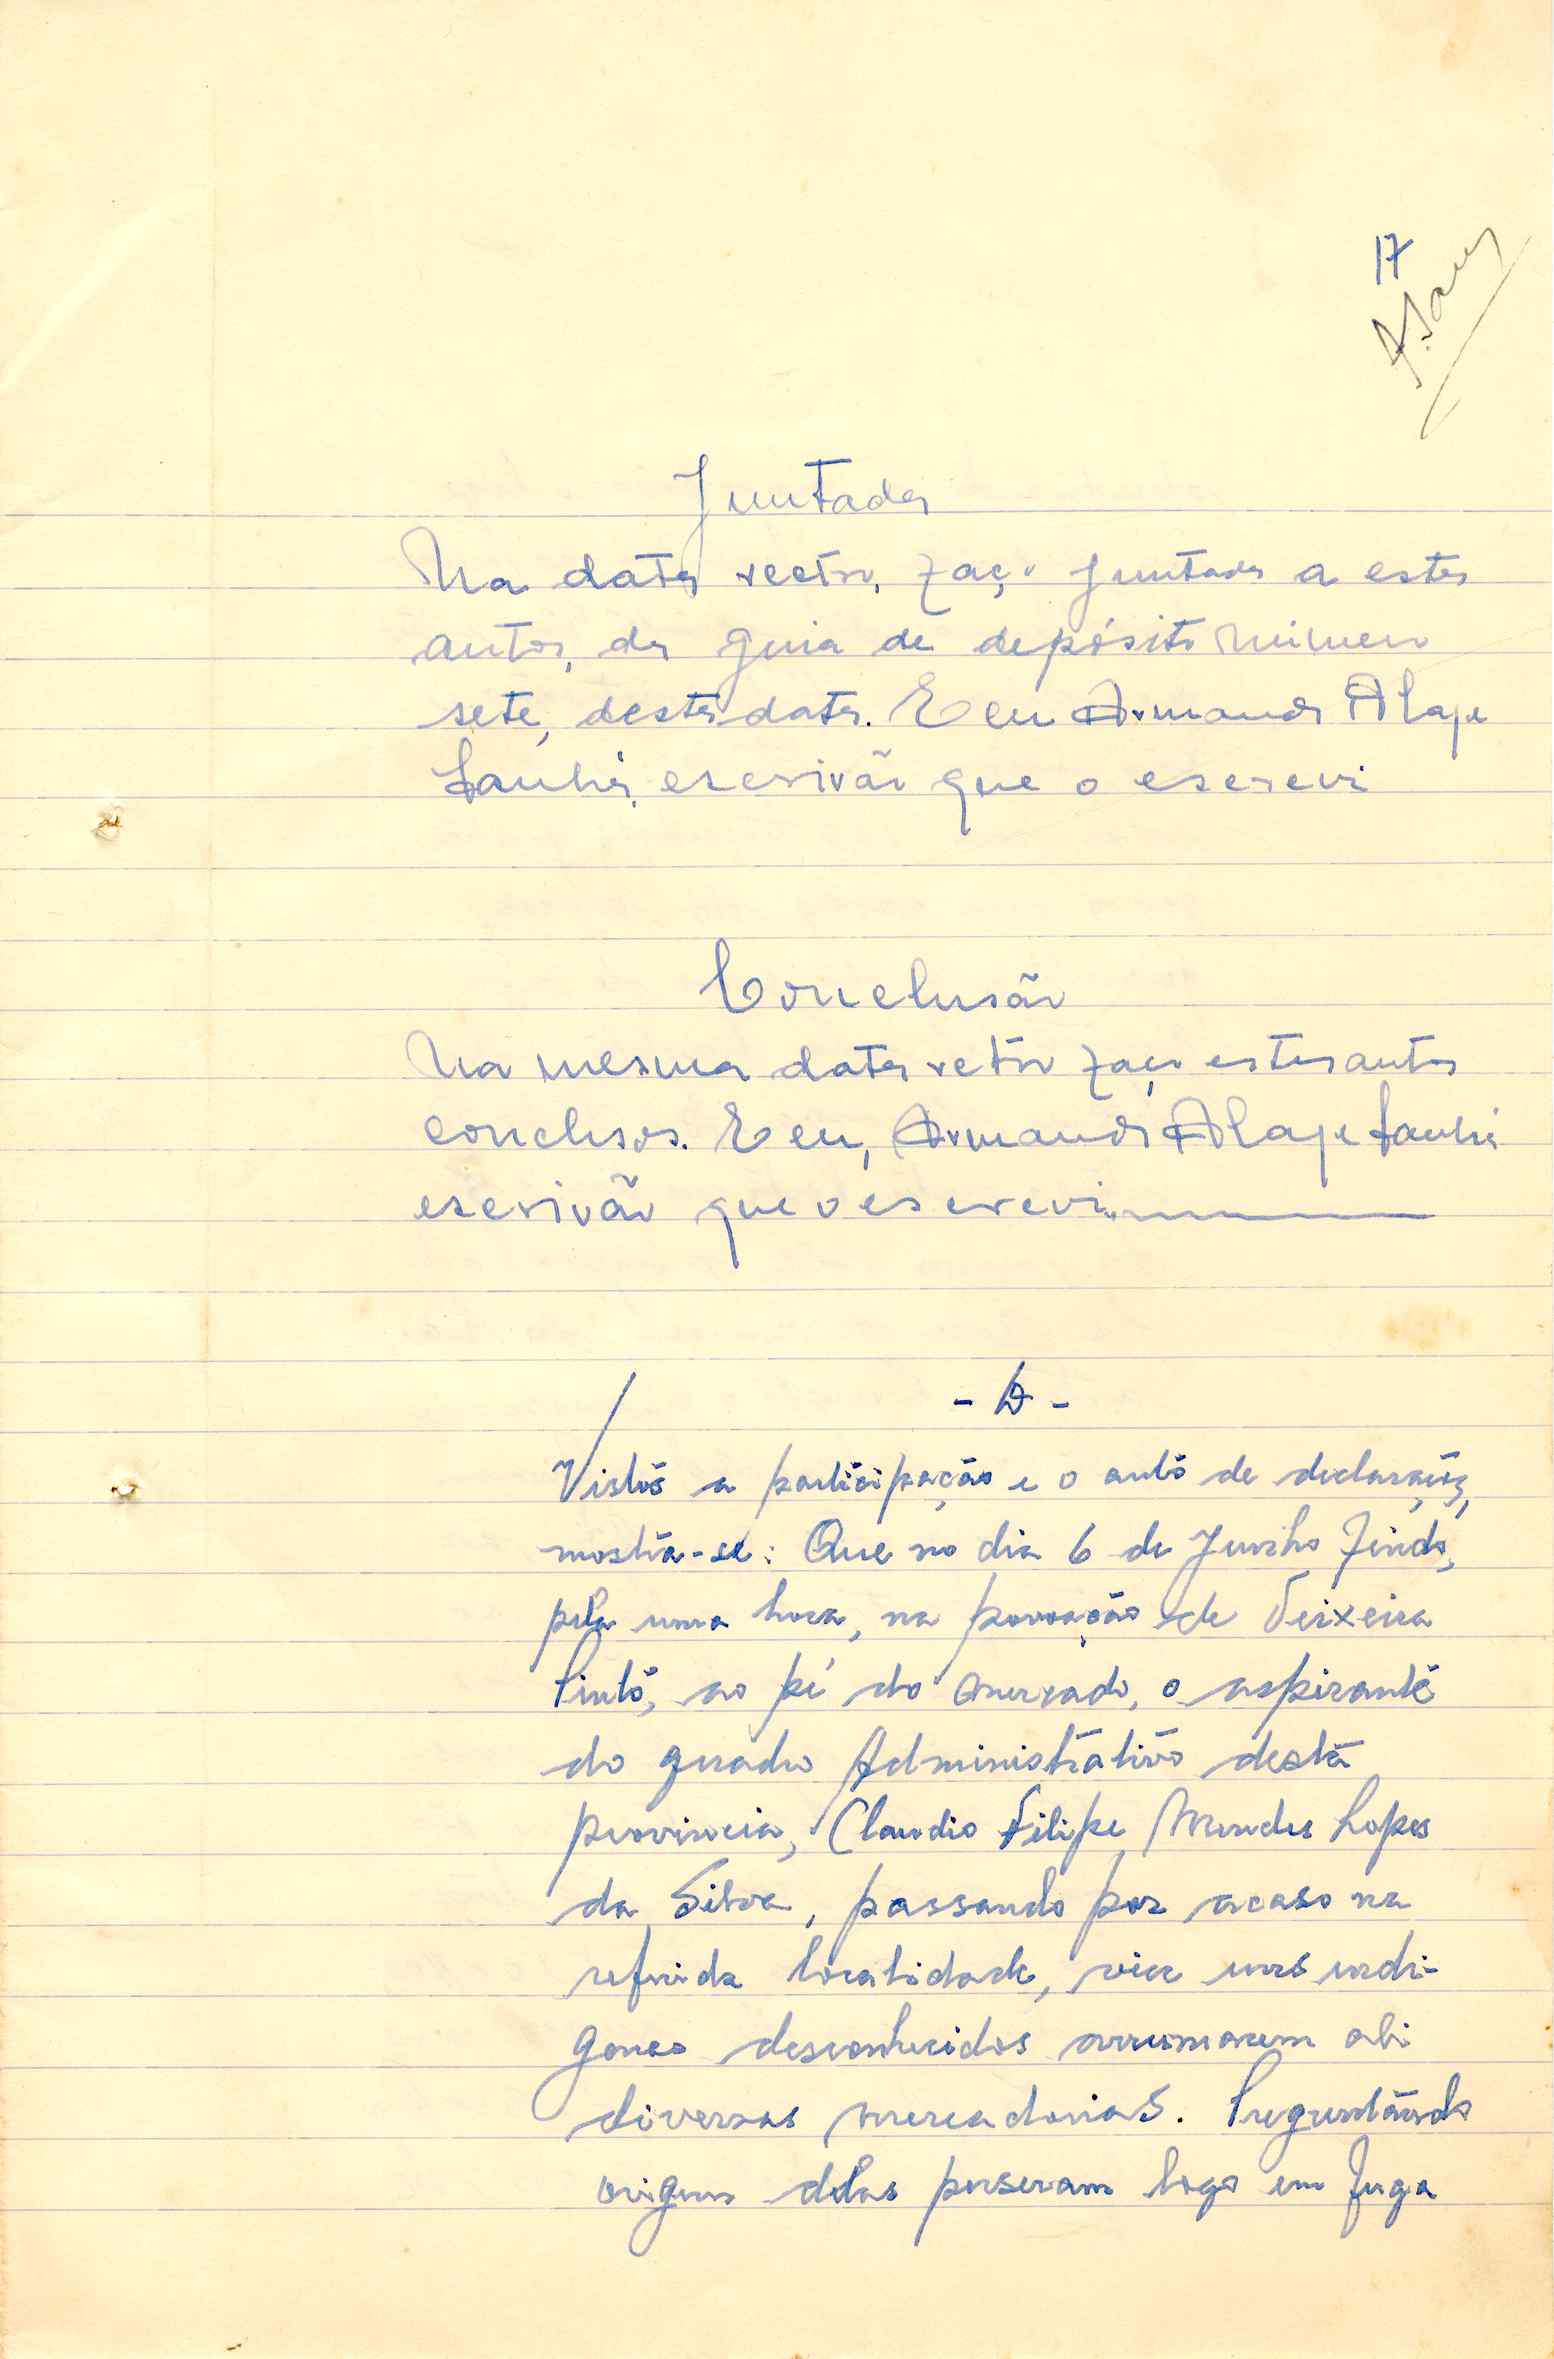 17
Juntada
Na data rectro, faço juntada a estes
autos, da guia de depósito número
sete, desta data. E eu Armando Alaje
Sanhá, escrivão que o escrevi
Conclusão
Na mesma data retro faço estes autos
conclusos. E eu, Armando Alaje Sanhá
escrivão que o escrevi.
Vistos a participação e o auto de declarações,
mostra-se: Que no dia 6 de Junho findo,
pela uma hora, na povoação de Teixeira
Pinto, ao pé do mercado, o aspirante
do quadro Administrativo desta
provincia, Claudio Filipe Mendes Lopes
da Silva, passando por acaso na
referida localidade, vira uns indi-
genas desconhecidos arrumarem ali
diversas mercadorias. Preguntando
origem delas puseram logo em fuga